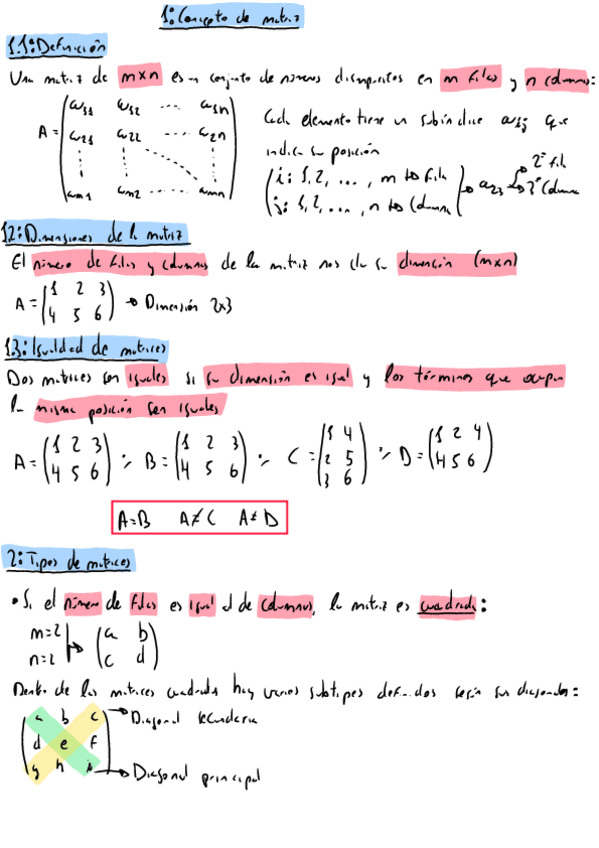 1: Concepto de matriz
1.1: Definición
Una matriz de m×n es un conjunto de números dispuestos en m filas y n columnas:
A = (a₁₁ a₁₂ ... a₁n
a₂₁ a₂₂ ... a₂n
am1 am2 ... amn)
Cada elemento tiene un subíndice aij que
indica su posición
(i: 1, 2, ..., m → fila
j: 1, 2, ..., n → columna) → a₂₃ → 2ª fila
→ 3ª columna
1.2: Dimensiones de la matriz
El número de filas y columnas de la matriz nos da su dimensión (m×n)
A = (1 2 3
4 5 6) → Dimensión 2x3
1.3: Igualdad de matrices
Dos matrices son iguales si su dimensión es igual y los términos que ocupan
la misma posición son iguales
A = (1 2 3
4 5 6) ; B = (1 2 3
4 5 6) ; C = (1 4
2 5
3 6) ; D = (1 2 4
4 5 6)
A=B A≠C A≠D
2: Tipos de matrices
• Si el número de filas es igual al de columnas, la matriz es cuadrada:
m=2
n=2 → (a b
c d)
Dentro de las matrices cuadradas hay varios subtipos definidos según sus diagonales:
(a b c → Diagonal secundaria
d e f
g h i) → Diagonal principal